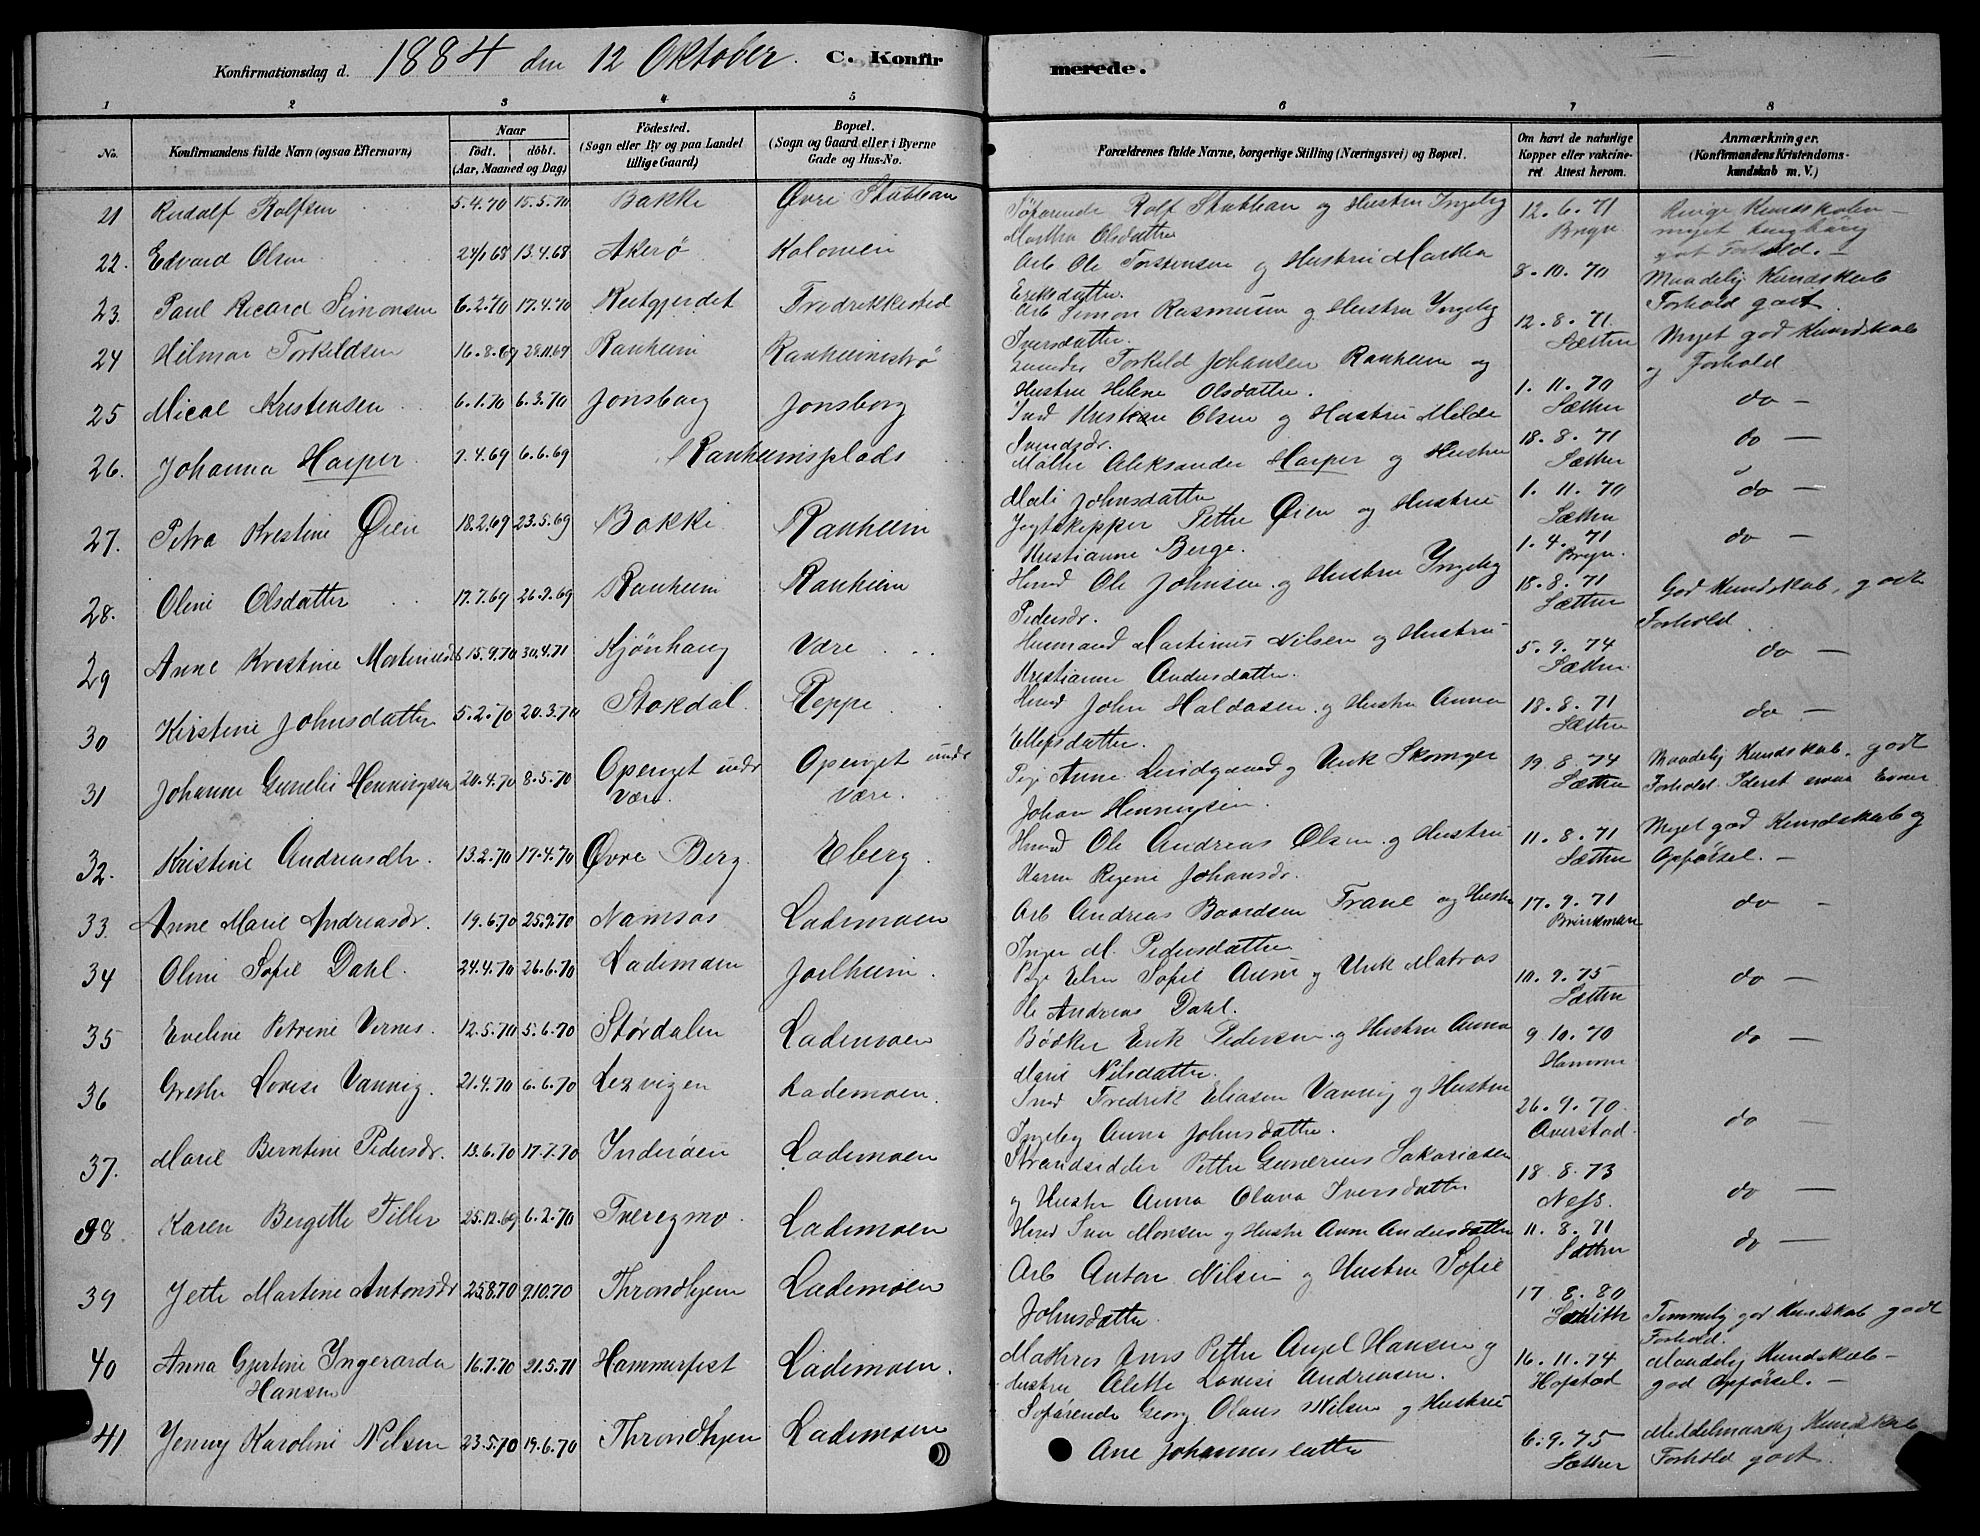 Konfirmationsdag d. 1884 den 12 Oktober. C. Konfirmerede.
1 2 3 4 5 6 7 8
No. Konfirmandens fulde Navn (ogsaa Efternavn) Naar født. døbt. (Aar, Maaned og Dag) Födested. (Sogn eller By og paa Landet tillige Gaard) Bopæl. (Sogn og Gaard eller i Byerne Gade og Hus-No. Forældrenes fulde Navne, borgerlige Stilling (Næringsvei) og Bopæl. Om havt de naturlige Kopper eller vakcineret Attest herom. Anmærkninger. (Konfirmandens Kristendomskundskab m. V.)
21 Rudolf Rolfsen 5.4.70 15.5.70 Bakke Øvre Stubban Söfarende Rolf Stubban og Hustru Ingebg Martha Olsdatter 12.6.71 Bryn. Ringe Kundskaber - meget tunghörig godt Forhold. -
22. Edvard Olsen 24/1 68 13.4.68 Akerø Kolonien Arb Ole Torstensen og Hustru Martha Eriksdatter. 8.10.70 Maadelig Kundskab Forhold godt
23. Paul Ricard Simonsen 6.2.70 17.4.70 Reitgjerdet Fredrikkested Arb Simon Rasmusen og Hustru Ingebg Iversdatter. 12.8.71 Sæther Meget god Kundskab og Forhold
24 Hilmar Torkildsen 16.8.69 28.11.69 Ranheim Ranheimströ Torkild Johansen Ranheim og Hustru Helene Olsdatter. 1.11.70 Sæther do -
25 Mical Kristensen 6.1.70 6.3.70 Jonsborg Jonsborg Ind Kristian Olsen og Hustru Milde Svendsdr. 18.8.71 Sæther do -
26. Johanna Harper 7.4.69 6.6.69 Ranheimsplads Aleksander Harper og Hustru Mali Johnsdatter 1.11.70 Sæther do -
27. Petra Krestine Øien 18.2.69 23.5.69 Bakke Ranheim Jegtskipper Petter Øien og Hustru Kristianne Berge. 1.4.71 Bryn. do -
28. Oline Olsdatter 17.7.69 26.9.69 Ranheim Ranheim Husmd Ole Johnsen og Hustru Ingebg Pedersdr. 18.8.71 Sæther God Kundskab, godt Forhold.
29 Anne Krestine 15.9.70 30.4.71 Kjönhaug Være Husmand Martinus Nilsen og Hustru Kristianne Andersdatter. 5.9.74 Sæther. do -
30 Kirstine Johnsdatter 5.2.70 20.3.70 Stokdal. Reppe Husmd John Haldosen og Hustru Anna Ellefsdatter. 18.8.71 Sæther do -
31 Johanne Henningsen 20.4.70 8.5.70 under Være under Være. Pige Anne Lindgaard og Unk Johan Henningsen. 19.8.74 Sæther Maadelig Kundskab. godt Forhold.
32. Kristine Andreasdtr. 13.2.70 17.4.70 Øvre Berg. Eberg. Husmd Ole Andreas Olsen og Hustru Karen Regine Johansdr. 11.8.71 Sæther Meget god Kundskab og Opförsel. -
33. Anne Marie Andreasdr. 19.6.70 25.9.70 Namsos Lademoen Arb Andreas Baardsen og Hustru Inger M. Pedersdatter 17.9.71 Brinkman do -
34 Oline Sofie Dahl. 24.4.70 26.6.70 Lademoen Jarlheim. Pige Elen Sofie Aune og Unk Matros Ole Andreas Dahl. 10.9.75 Sæther do -
35 Eveline Petrine Vernes. 12.5.70 5.6.70 Størdalen Lademoen Bödker Erik Pedersen og Hustru Anna Marie Nilsdatter. 9 10.70 do -
36 Grethe Lovise Vannvig. 21.4.70 6.6.70 Lexvigen Lademoen. Fredrik Eliasen Vannvig og Hustru Ingebg Anna Johnsdatter. 26.9.70. Averstad. do -
37. Marie Berntine Pedersdr. 13.6.70 17.7.70 Inderøen Lademoen Strandsidder Petter Gunerius Sakariasen og Hustru Anna Olava Iversdatter 18.8.73 Nefs. do -
38. Karen Bergitte Tiller 25.12.69 6.2.70 Tveregmo. Lademoen Husmd Iver Monsen og Hustru Anne Andersdatter 11.8.71 Sæther do -
39 Jette Martine Antonsdr 25.8.70 9.10.70 Throndhjem Lademoen Arb Anton Nilsen og Hustru Sofie Johnsdatter. 17.8.80 Temmelig god Kundskab godt Forhold.
40 Anna Gjertine Ingerarda Hansen 16.7.70 21.5.71 Hammerfest Lademoen. Matros Petter Angel Hansen og Hustru Alette Lovise Andreasen. 16.11.74 Hofstad Maadelig Kundskab - god Opförsel. -
41 Jenny Karoline Nilsen 23.5.70 19.6.70 Throndhjem Lademoen Söfarende Georg Olaus Nilsen og Hustru Ane Johannesdatter 6.9.75 Sæther Middelmaadig Kundskab Forhold godt.